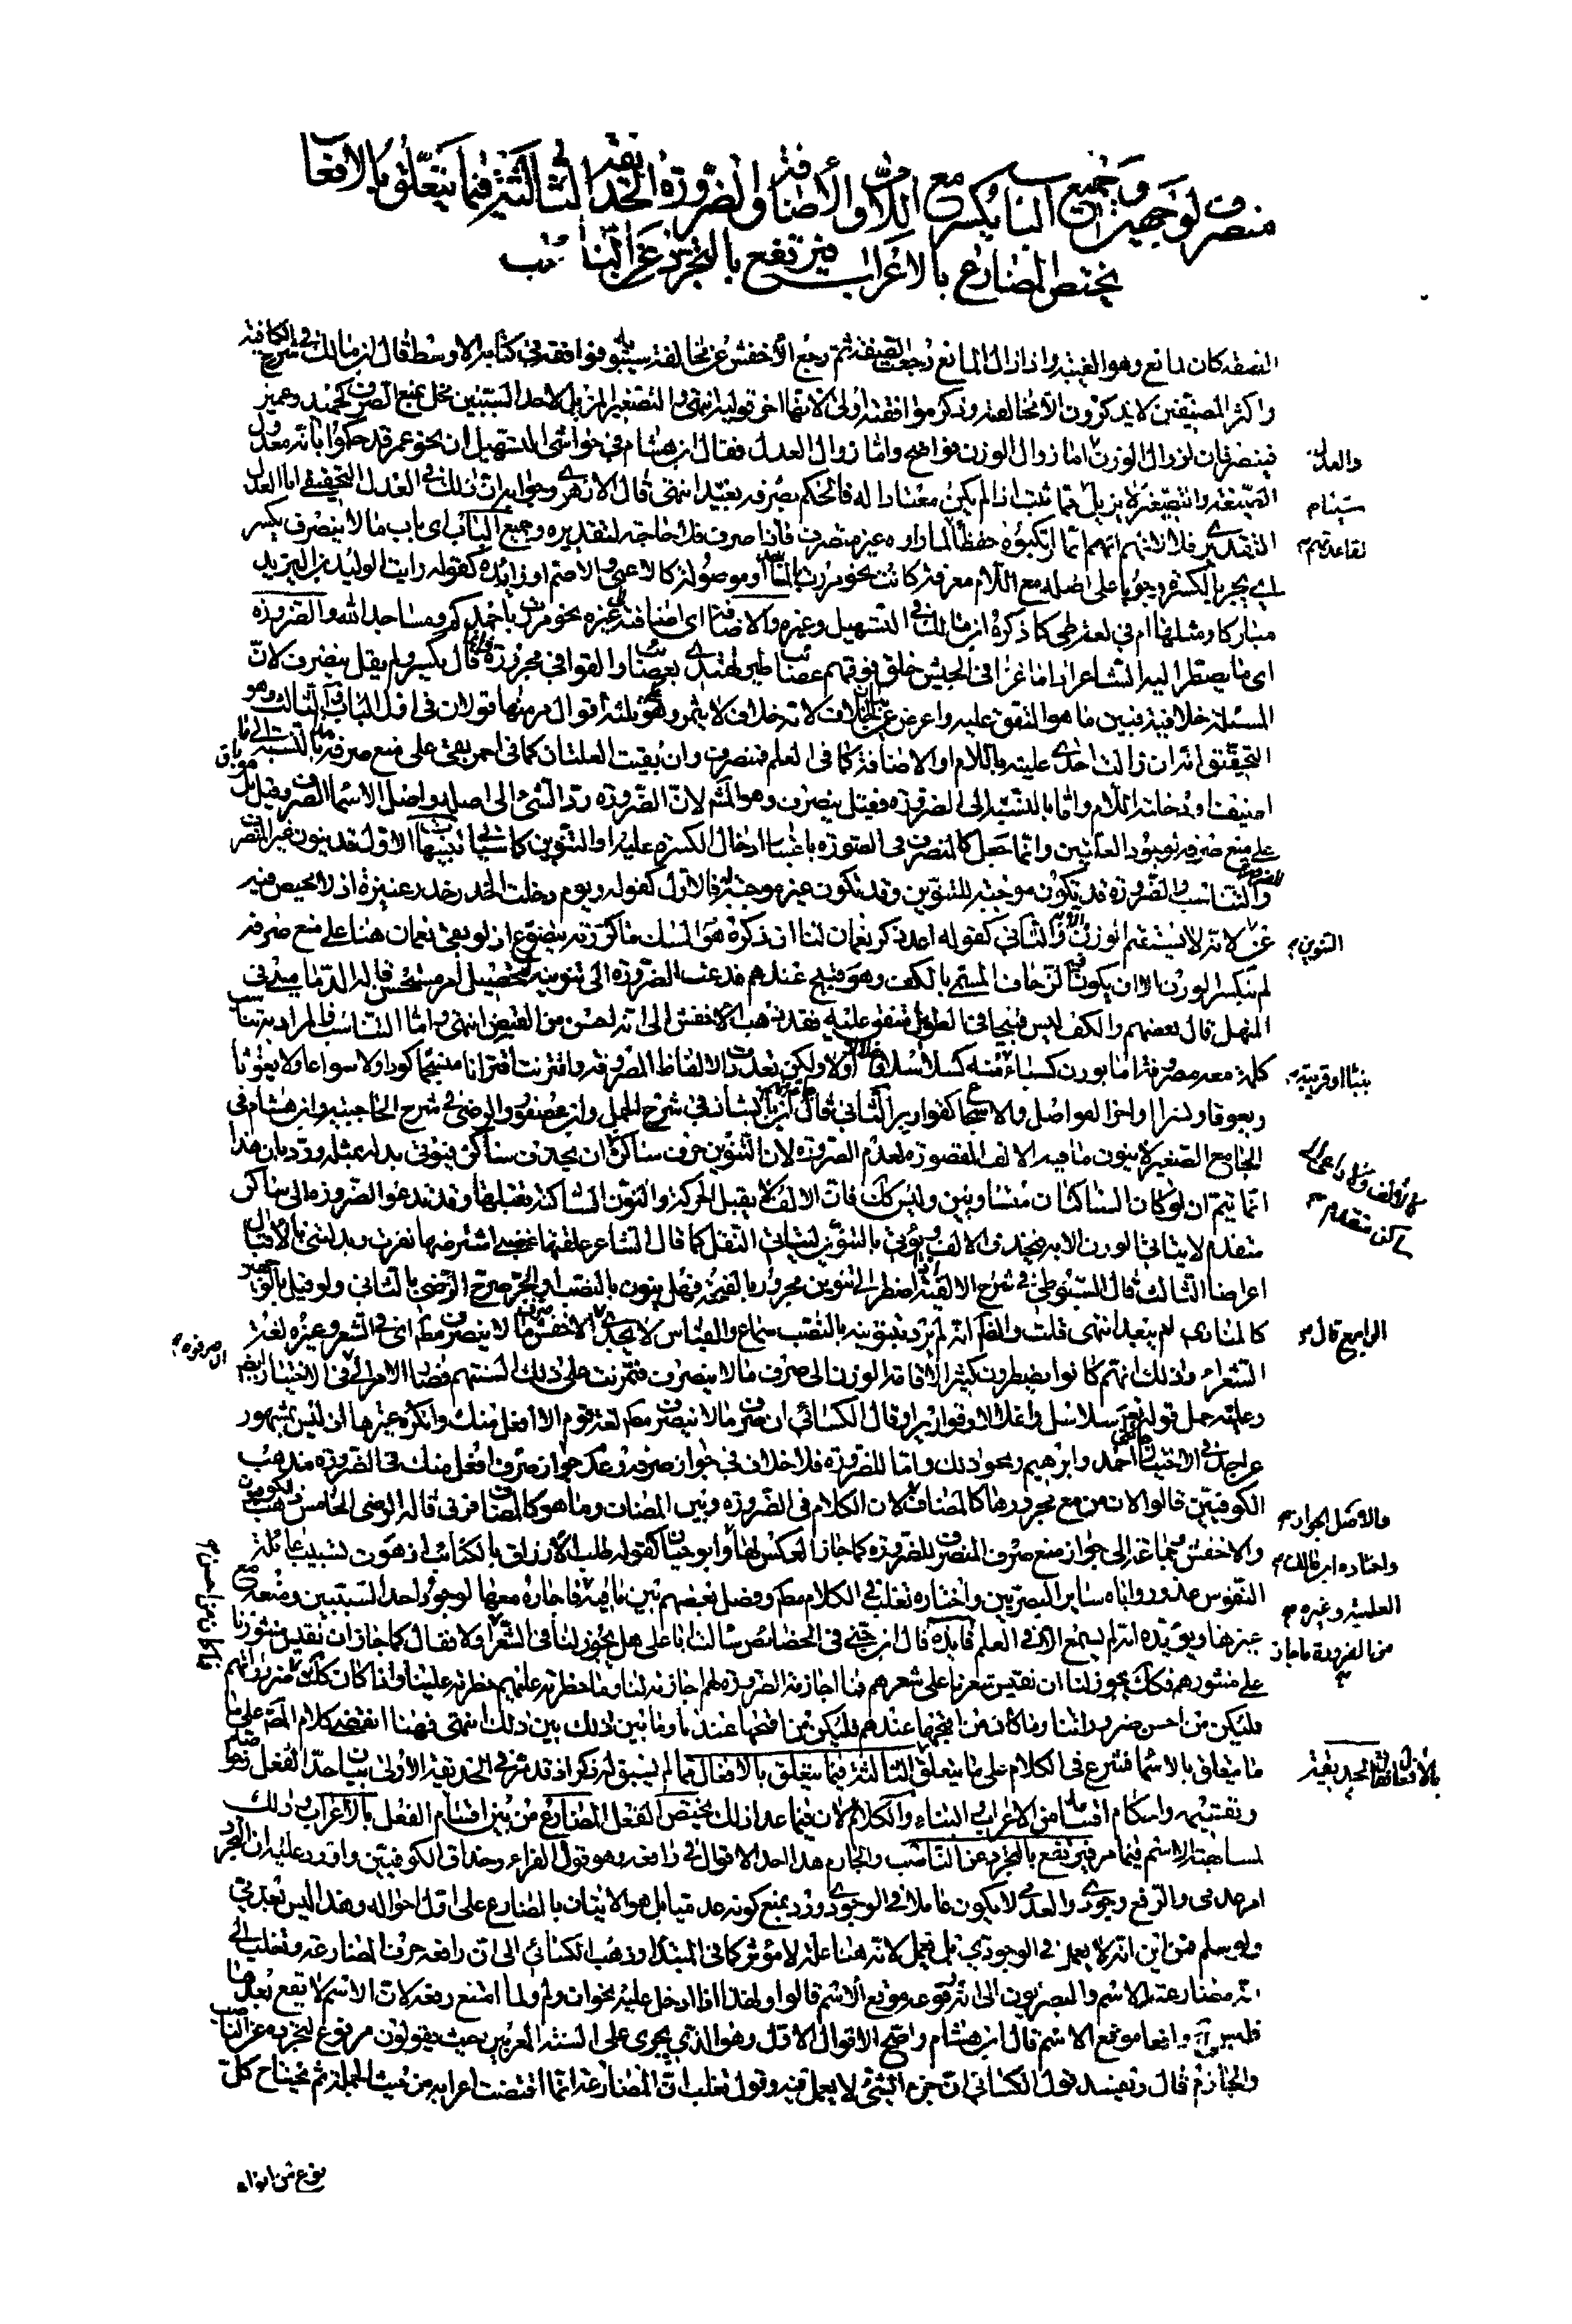 منصرف لوجهين وجميع الباب يكسر مع اللام والاضافة والضرورة الحديقة الثالثة فيما يتعلق بالافعال
يختص المضارع بالاعراب فيرتفع بالتجرد عن الناصب
الصفه كان لمانع وهو العلمية واذا زال المانع رجعت الصفة ثم رجع الأخفش عن مخالفة سيبويه فوافقه في كتابه الاوسط قال ابن مالك في شرح الكافية
واكثر المصنفين لا يذكرون الا مخالفته وذكر موافقته اولى لانها اخر قوليه انتهى والتصغير المزيل لاحد السببين مخل بمنع الصرف كحميد وعمير
فينصرفان لزوال الوزن اما زوال الوزن فواضح واما زوال العدل فقال ابن هشام في حواشي التسهيل ان نحو عمر قد حكموا بأنه معدول
والعدل
الصيغة والتصغير لا يزيل ما ثبت اذ لم يكن معتادا له فالحكم بصرفه بعيد انتهى قال الازهري وجوابه ان ذلك في العدل التحقيقي اما العدل
التقديري فلا لانهم انما ارتكبوه حفظا لما راوه غير منصرف فاذا صرف فلا حاجة لتقديره وجميع الباب اي باب ما لا ينصرف يكسر
اي يجر بالكسرة وجوبا على اصله مع اللام معرفة كانت نحو مررت بالافضل او موصولة كالاعمى والاصم او زايدة كقوله رايت الوليد بن اليزيد
مباركا ومثلها ام في لغة طي كما ذكره ابن مالك في التسهيل وغيره والاضافة اي اضافته الى غيره نحو مررت باحمدكم ومساجد الله والضرورة
اي ما يضطر اليه الشاعر اذا ما غزا في الجيش حلق فوقهم عصائب طير تهتدي بعصائب والقوافي مجرورة وانما قال يكسر ولم يقل ينصرف لان
المسئلة خلافية فبين ما هو المتفق عليه واعرض عن بيان الخلاف لانه خلاف لا يثمر وهو ثلثة اقوال مر منها قولان في اول الباب والثالث وهو
التحقيق انه ان زالت احدى علتيه باللام او الاضافة كما في العلم فمنصرف وان بقيت العلتان كما في احمر بقي على منع صرفه هذا بالنسبة الى ما
اضيف او دخلته اللام واما بالنسبة الى الضرورة فقيل ينصرف وهو المشهور لان الضرورة رد الشئ الى اصله واصل الاسماء الصرف وقيل بل هو باق
على منع صرفه لوجود العلتين وانما جعل كالمنصرف في الصورة باعتبار ادخال الكسرة عليه او التنوين كما سيأتي تنبيهات الاول قد ينون غير المنصرف
للتناسب والضرورة قد تكون موجبة للتنوين وقد تكون غير موجبة فالاول كقوله ويوم دخلت الخدر خدر عنيزة اذ لا محيص فيه
عن التنوين لانه لا يستقيم الوزن الا به والثاني كقوله اعد ذكر نعمان لنا ان ذكره هو المسك ما كررته يتضوع اذ لو بقي نعمان هنا على منع صرفه
لم ينكسر الوزن الا ان يكون فيه الزحاف المسمى بالكف وهو قبيح عندهم فدعت الضرورة الى تنوينه لتحصيل امر مستحسن قاله الدماميني في
المنهل قال بعضهم والكف ليس قبيحا في الطويل متفق عليه فقد ذهب الاخفش الى انه احسن من القبض انتهى واما التناسب فالمراد به تناسب
كلمة معه مصروفة اما بوزن كسبا بنبا او قريبة منه كسلاسلا واغلالا اولا ولكن تعددت الالفاظ المصروفة واقترنت اقترانا متناسبا كودا ولا سواعا ولا يغوثا
ويعوقا ونسرا واخر الفواصل والاسجاع كقوارير الثاني قال ابن بابشاذ في شرح الجمل وابن عصفور والرضي في شرح الحاجبية وابن هشام في
الجامع الصغير لا ينون ما فيه الالف المقصورة لعدم الضرورة لان التنوين حرف ساكن ان يحذف ساكن فيؤتى بدله بمثله ورد بان هذا
انما يتم ان لو كان الساكنان متساويين وليس كك فان الالف لا يقبل الحركة والنون الساكنة تقبلها وقد تدعو الضرورة الى ساكن
اعراضنا الثالث قال السيوطي في شرح الالفية اذا اضطر الى تنوين مجرور بالفتحة فهل ينون بالنصب او بالجر صرح الرضي بالثاني ولو قيل بالوجهين
كالمنادى لم يبعد انتهى قلت والظاهر انه لم يرد تنوينه بالنصب سماع والقياس لا يجدي الرابع قال الاخفش صرف ما لا ينصرف مطلقا اي في الشعر وغيره لغة
الشعراء وذلك انهم كانوا يضطرون كثيرا لاقامة الوزن الى صرف ما لا ينصرف فتمرنت على ذلك السنتهم فصار الامر الى في الاختيار ايضا
وعليه حمل قوله تعالى سلاسل واغلالا وقواريرا وقال الكسائي ان صرف ما لا ينصرف مطلقا لغة قوم الا افعل منك وانكره غيرهما اذ ليس بمشهور
عن احد في الاختيار نحو احمد وابرهيم ونحو ذلك واما للضرورة فلا خلاف في جواز صرفه وعدم جواز صرف افعل منك في الضرورة مذهب
الكوفيين قالوا لان من مع مجرورها كالمضاف لان الكلام في الضرورة وبين المضاف وما هو كالمضاف فرق قاله الرضي الخامس ذهب الكوفيون
والاخفش وجماعة الى جواز منع صرف المنصرف للضرورة كما جاز العكس لها وابو حيان كقوله طلب الازارق بالكتائب اذ هوت بشبيب غائلة
النفوس غدور واباه ساير البصريين واختاره ثعلب في الكلام مطلقا وفصل بعضهم بين ما فيه فاجازه معها لوجود احد السببين ومنعه مع
غيرها ويؤيده انه لم يسمع الا في العلم فايدة قال ابن جني في الخصائص سالت ابا علي هل يجوز لنا في الشعر ولا فقال كما جاز ان نقيس منثورنا
على منثورهم فكك يجوز لنا ان نقيس شعرنا على شعرهم فما اجازته الضرورة لهم اجازته لنا وما حظرته عليهم حظرته علينا واذا كان كك فما كان من احسن ضروراتهم
فليكن من احسن ضروراتنا وما كان من اقبحها عندهم فليكن من اقبحها عندنا وما بين ذلك بين ذلك انتهى فهنا انقضى كلام المص على ما
ما يتعلق بالاسماء فشرع في الكلام على ما يتعلق بالافعال فقال الحديقة الثالثة فيما يتعلق بالافعال مما لم يسبق له ذكر اذ قد مر في الحديقة الاولى بيان حد الفعل وخواصه
وتقسيمه واحكام اقسامه من الاعراب والبناء والكلام الان فيما عدا ذلك يختص الفعل المضارع من بين اقسام الفعل بالاعراب وذلك
لمشابهته الاسم فيما مر فيرتفع بالتجرد عن الناصب والجازم هذا احد الاقوال في رافعه وهو قول الفراء وحذاق الكوفيين واورد عليه ان التجرد
امر عدمي والرفع وجودي والعدمي لا يكون عاملا في الوجودي ورد بمنع كونه عدميا بل هو الاتيان بالمضارع على اول احواله وهذا ليس بعدمي
ولو سلم فمن اين انه لا يعمل في الوجودي بل يعمل لانه هنا علامة لا مؤثر كما في المبتدا وذهب الكسائي الى ان رافعه حرف المضارعة وثعلب الى
انه مضارعته الاسم والبصريون الى انه وقوعه موقع الاسم قالوا ولهذا اذا دخل عليه نحو ان ولم ولما امتنع رفعه لان الاسم لا يقع بعدها
فليس ح واقعا موقع الاسم قال ابن هشام واصح الاقوال الاول وهو الذي يجري على السنة المعربين حيث يقولون مرفوع لتجرده عن الناصب
والجازم قال ويفسد قول الكسائي ان جزء الشئ لا يعمل فيه وقول ثعلب ان المضارعة انما اقتضت اعرابه من حيث الجملة ثم يحتاج كل
نوع من انواع